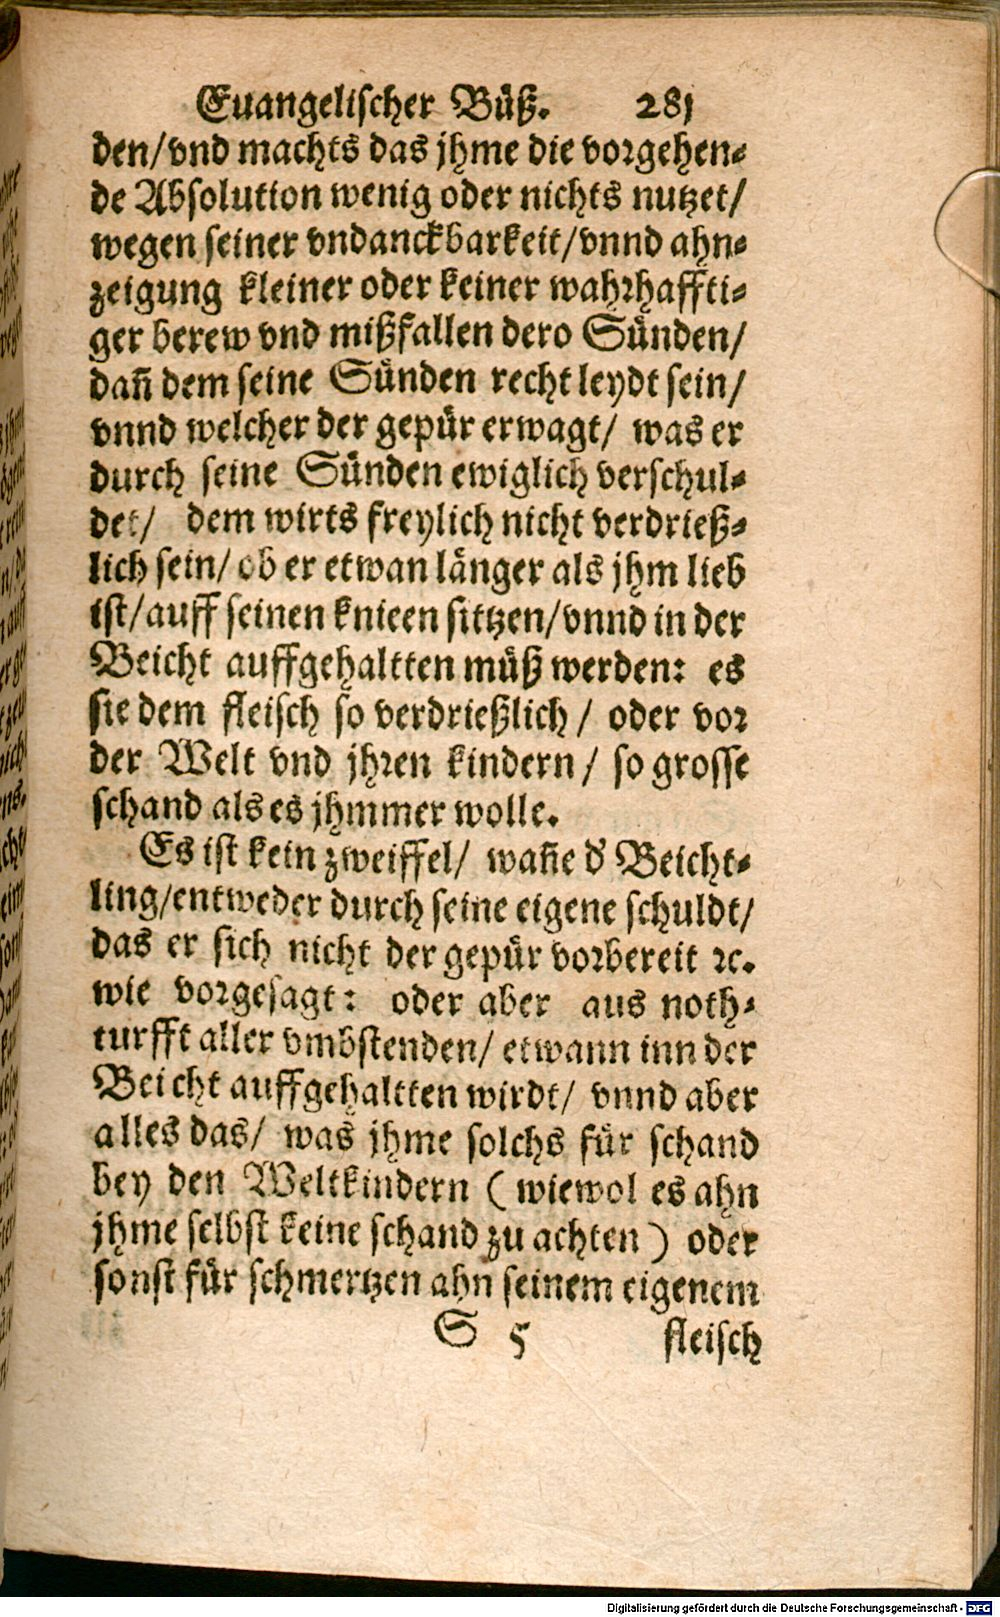 Euangelischer Büß. 281
den/vnd machts das jhme die vorgehen-
de Absolution wenig oder nichts nutzet/
wegen seiner vndanckbarkeit/vnnd ahn-
zeigung kleiner oder keiner wahrhaffti-
ger berew vnd mißfallen dero Sünden/
dañ dem seine Sünden recht leydt sein/
vnnd welcher der gepür erwagt/ was er
durch seine Sünden ewiglich verschul-
det/ dem wirts freylich nicht verdrieß-
lich sein/ ob er etwan länger als jhm lieb
ist/auff seinen knieen sittzen/vnnd in der
Beicht auffgehaltten müß werden: es
sie dem fleisch so verdrießlich / oder vor
der Welt vnd jhren kindern/ so grosse
schand als es jhmmer wolle.
Es ist kein zweiffel/ wañe d' Beicht-
ling/entweder durch seine eigene schuldt/
das er sich nicht der gepür vorbereit ꝛc.
wie vorgesagt: oder aber aus noth-
turfft aller vmbstenden/ etwann inn der
Beicht auffgehaltten wirdt/ vnnd aber
alles das/ was jhme solchs für schand
bey den Weltkindern ( wiewol es ahn
jhme selbst keine schand zu achten ) oder
sonst für schmertzen ahn seinem eigenem
S 5 fleisch
Digitalisierung gefördert durch die Deutsche Forschungsgemeinschaft - DFG